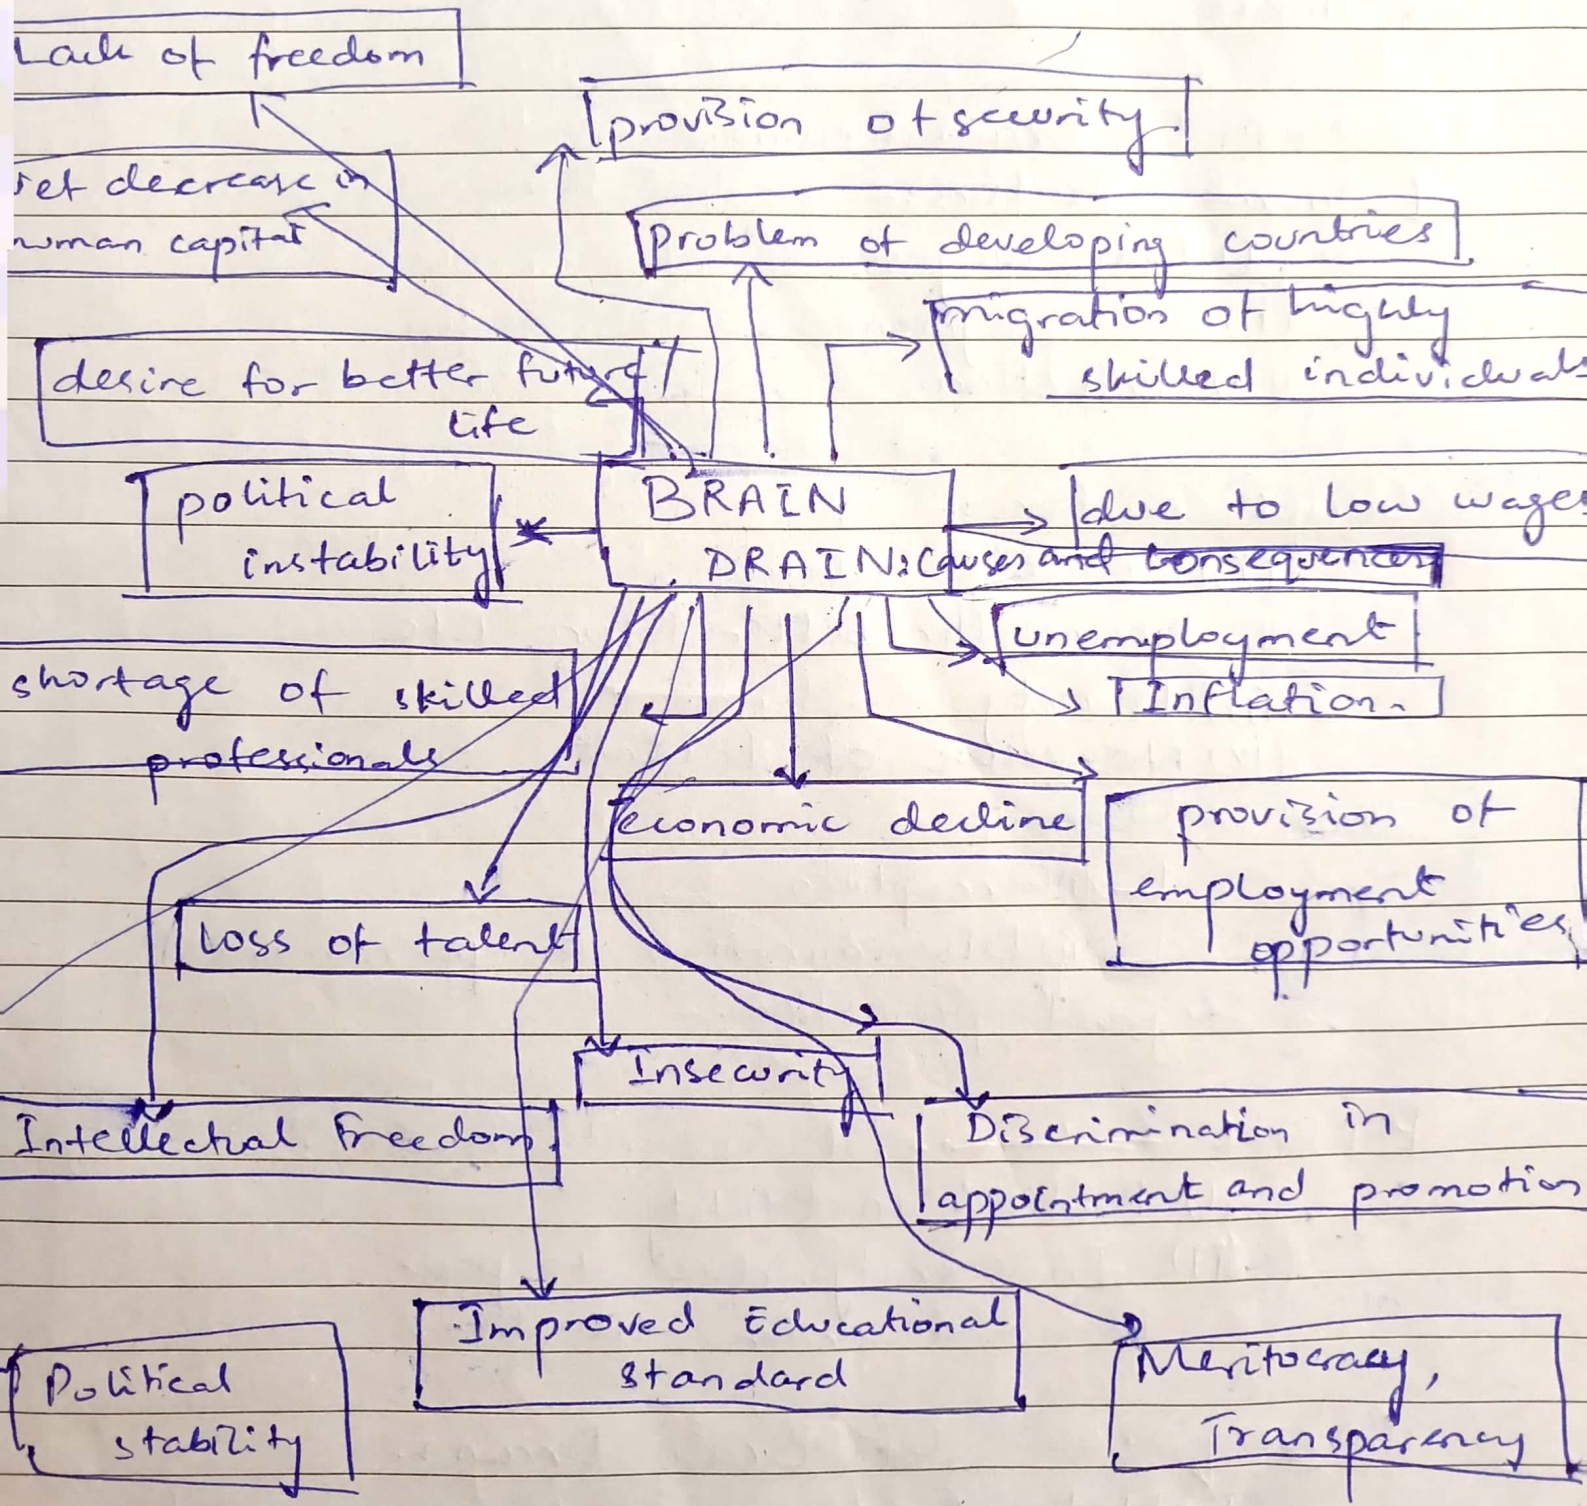 Lack of freedom
provision of security
net decrease in
human capital
problem of developing countries
migration of highly
skilled individuals
desire for better future /
life
political
instability
BRAIN
DRAIN: Causes and Consequences
due to low wages
unemployment
Inflation.
shortage of skilled
professionals
economic decline
provision of
employment
opportunities
Loss of talent
Insecurity
Intellectual Freedom.
Discrimination in
appointment and promotion
Improved Educational
standard
Political
stability
Meritocracy,
Transparency